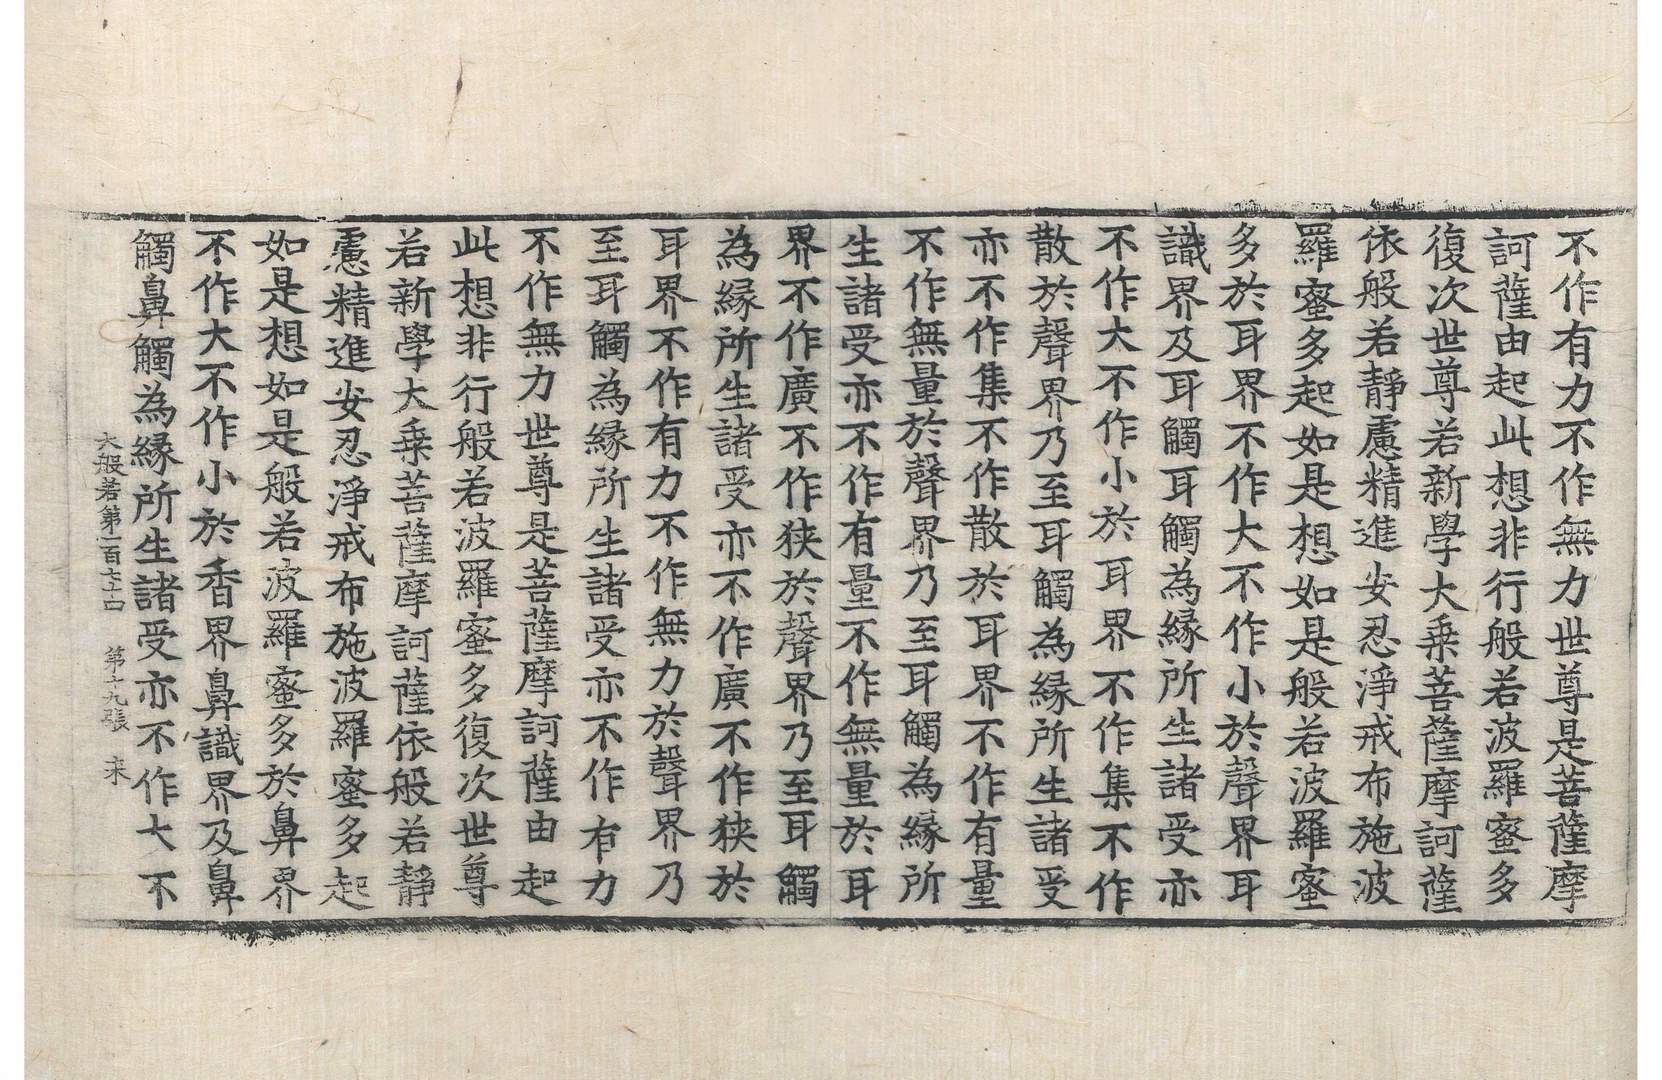 不作有力不作無力世尊是菩薩摩
訶薩由起此想非行般若波羅蜜多
復次世尊若新學大乗菩薩摩訶薩
依般若靜慮精進安忍淨戒布施波
羅蜜多起如是想如是般若波羅蜜
多於耳界不作大不作小於聲界耳
識界及耳觸耳觸為縁所生諸受亦
不作大不作小於耳界不作集不作
散於聲界乃至耳觸為縁所生諸受
亦不作集不作散於耳界不作有量
不作無量於聲界乃至耳觸為縁所
生諸受亦不作有量不作無量於耳
界不作廣不作狹於聲界乃至耳觸
為縁所生諸受亦不作廣不作狹於
耳界不作有力不作無力於聲界乃
至耳觸為縁所生諸受亦不作有力
不作無力世尊是菩薩摩訶薩由起
此想非行般若波羅蜜多復次世尊
若新學大乗菩薩摩訶薩依般若靜
慮精進安忍淨戒布施波羅蜜多起
如是想如是般若波羅蜜多於鼻界
不作大不作小於香界鼻識界及鼻
觸鼻觸為縁所生諸受亦不作大不
大般若第一百七十四 第十九張